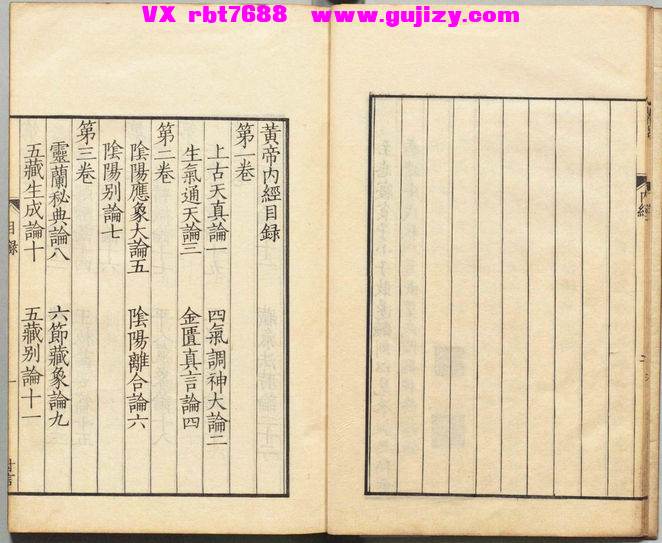 VX rbt7688 www.gujizy.com
內經
黃帝內經目錄
第一卷
上古天真論一 四氣調神大論二
生氣通天論三 金匱真言論四
第二卷
陰陽應象大論五 陰陽離合論六
陰陽別論七
第三卷
靈蘭秘典論八 六節藏象論九
五藏生成論十 五藏別論十一
目錄
一